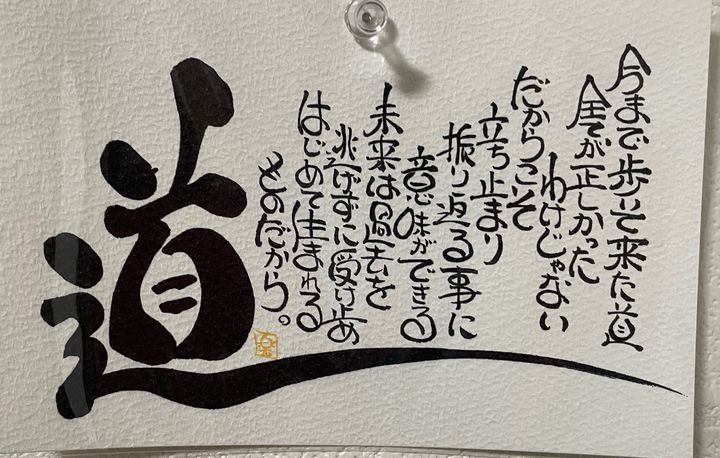 今まで歩いて来た道
全てが正しかった
わけじゃない
だからこそ
立ち止まり
振り返る事に
意味ができる
未来は過去を
逃げずに受け止め
はじめて生まれる
ものだから。
道